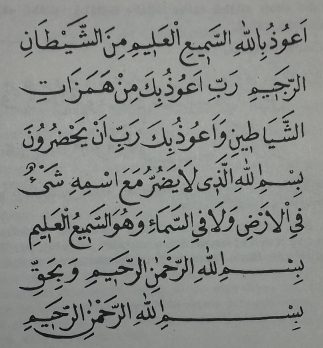 اَعُوذُ بِاللّٰهِ السَّمِيعِ الْعَلِيمِ مِنَ الشَّيْطَانِ
الرَّجِيمِ رَبِّ اَعُوذُ بِكَ مِنْ هَمَزَاتِ
الشَّيَاطِينِ وَاَعُوذُ بِكَ رَبِّ اَنْ يَحْضُرُونَ
بِسْمِ اللّٰهِ الَّذِى لَا يَضُرُّ مَعَ اسْمِهِ شَىْءٌ
فِى الْاَرْضِ وَلَا فِى السَّمَاءِ وَهُوَ السَّمِيعُ الْعَلِيمُ
بِسْمِ اللّٰهِ الرَّحْمٰنِ الرَّحِيمِ وَبِحَقِّ
بِسْمِ اللّٰهِ الرَّحْمٰنِ الرَّحِيمِ